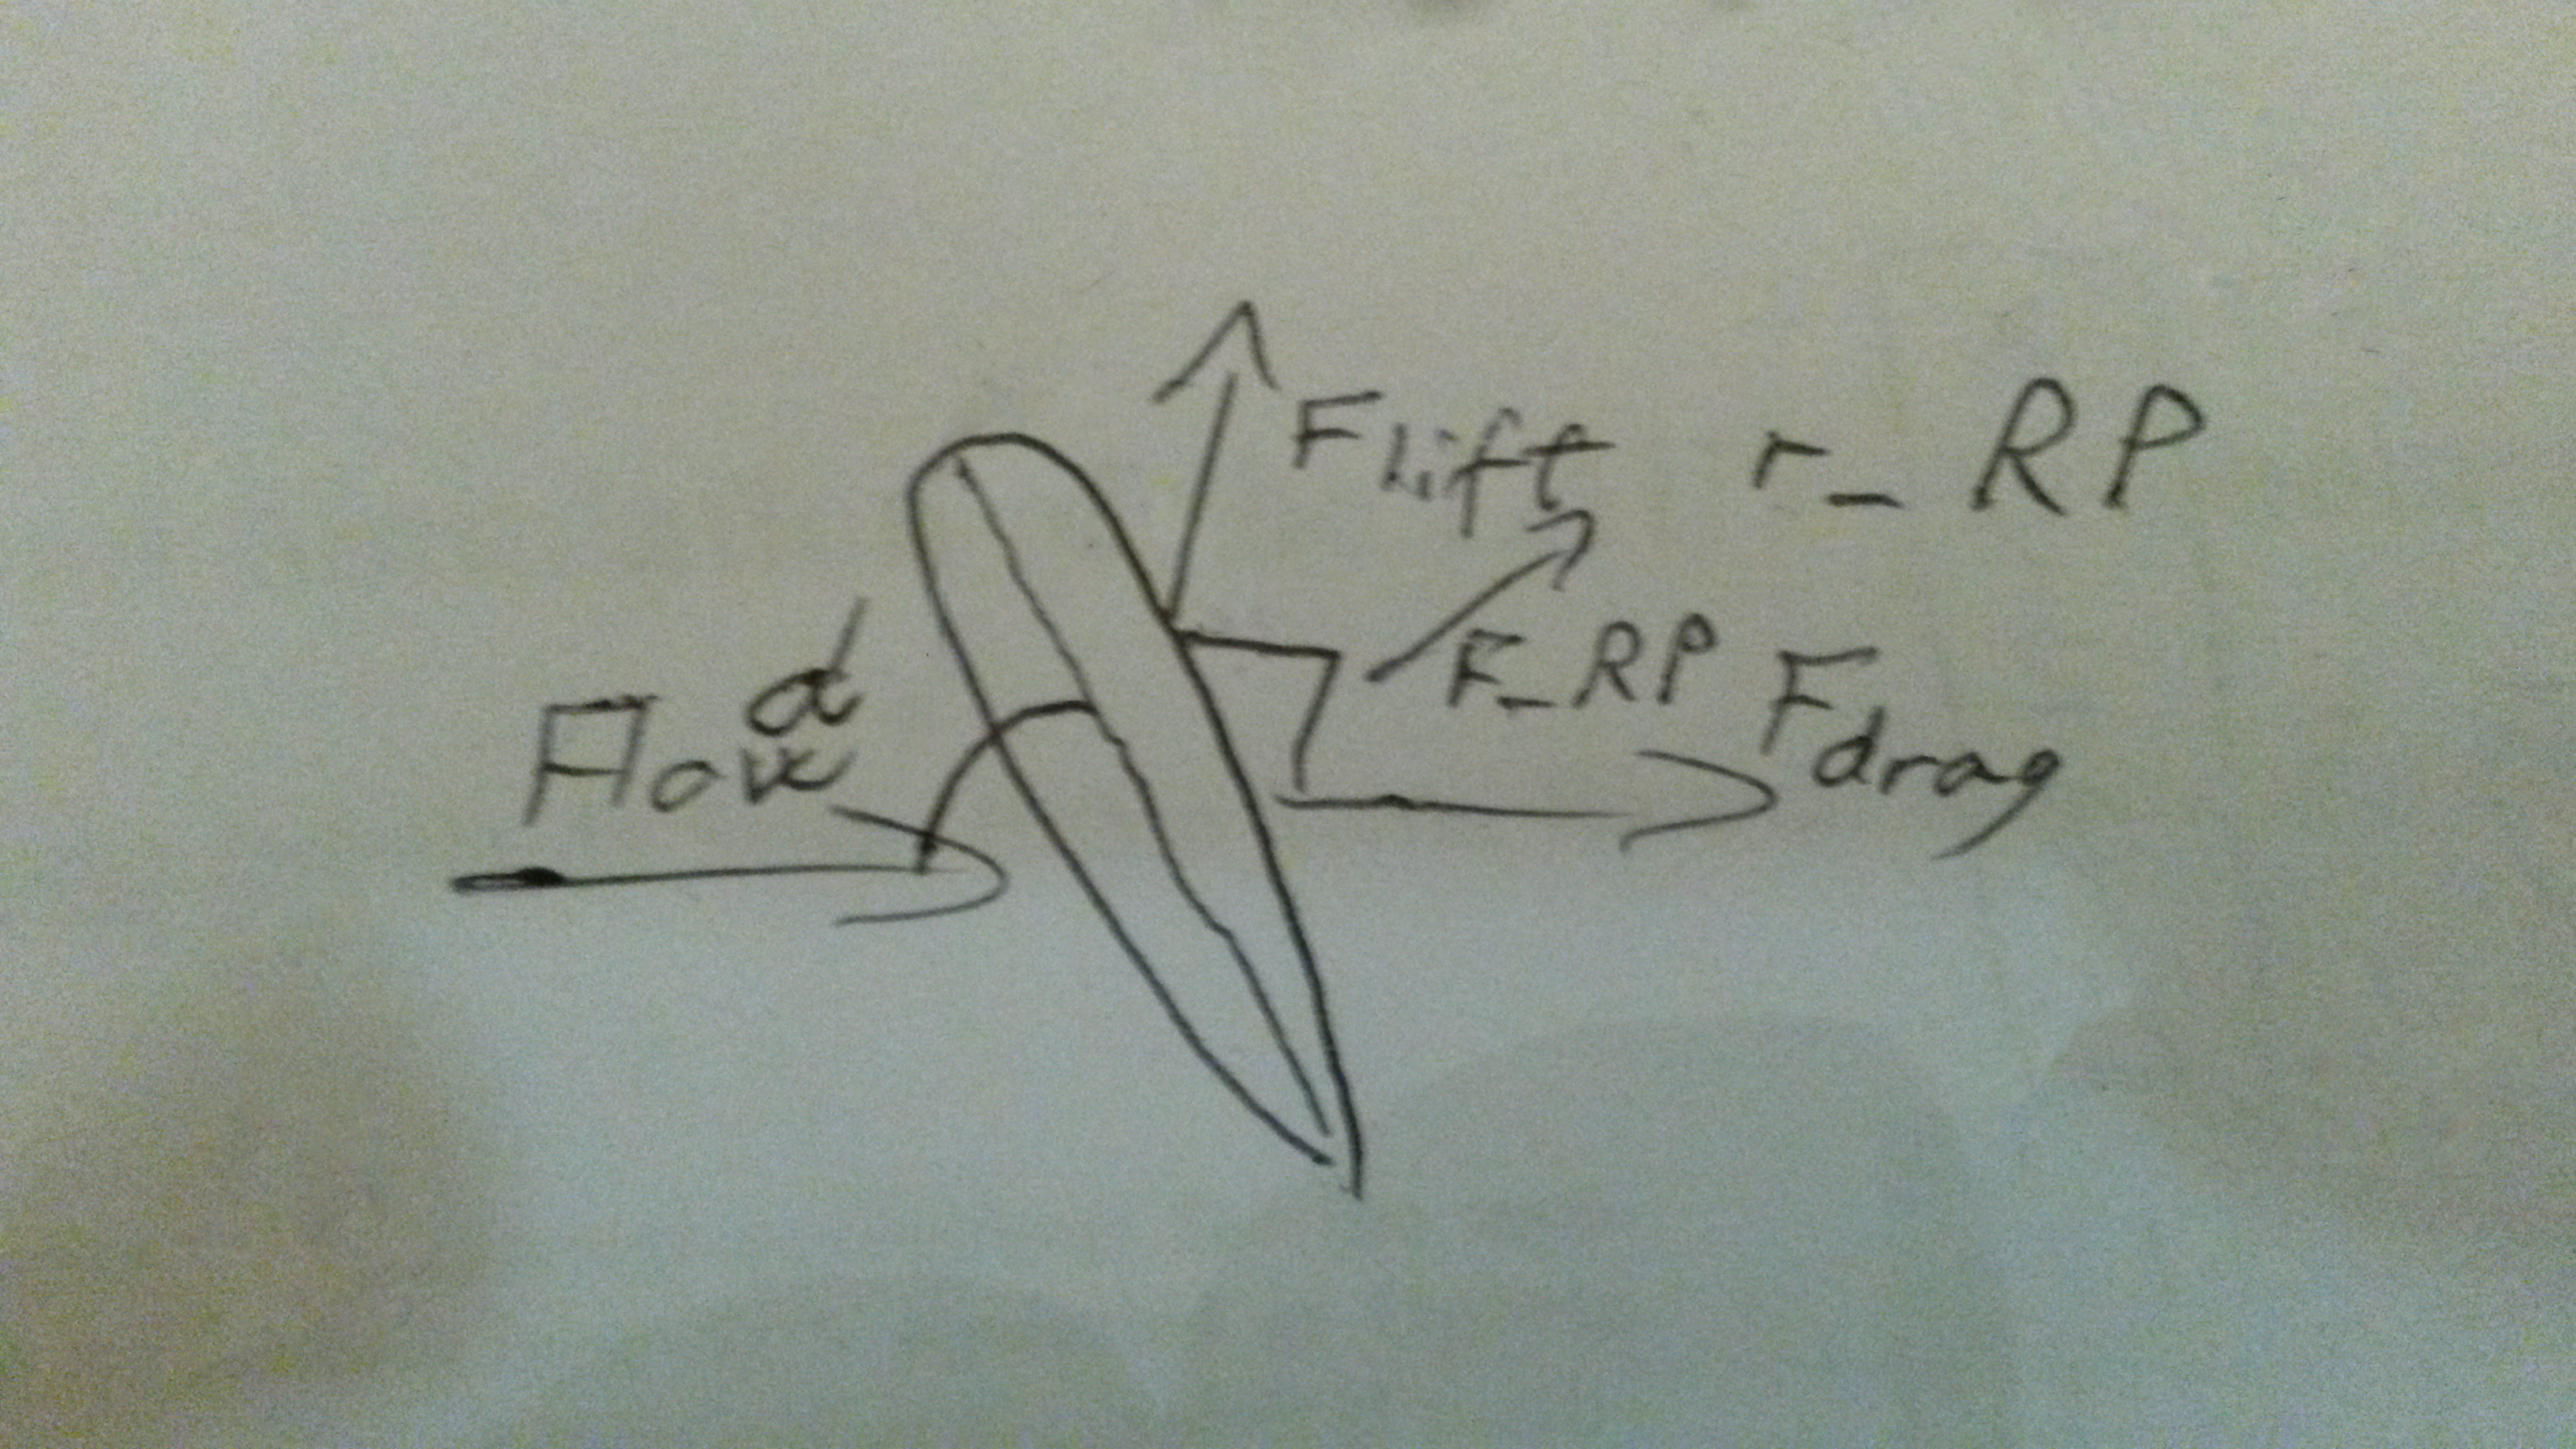 Flift r_RP
α
Flow
F_RP Fdrag